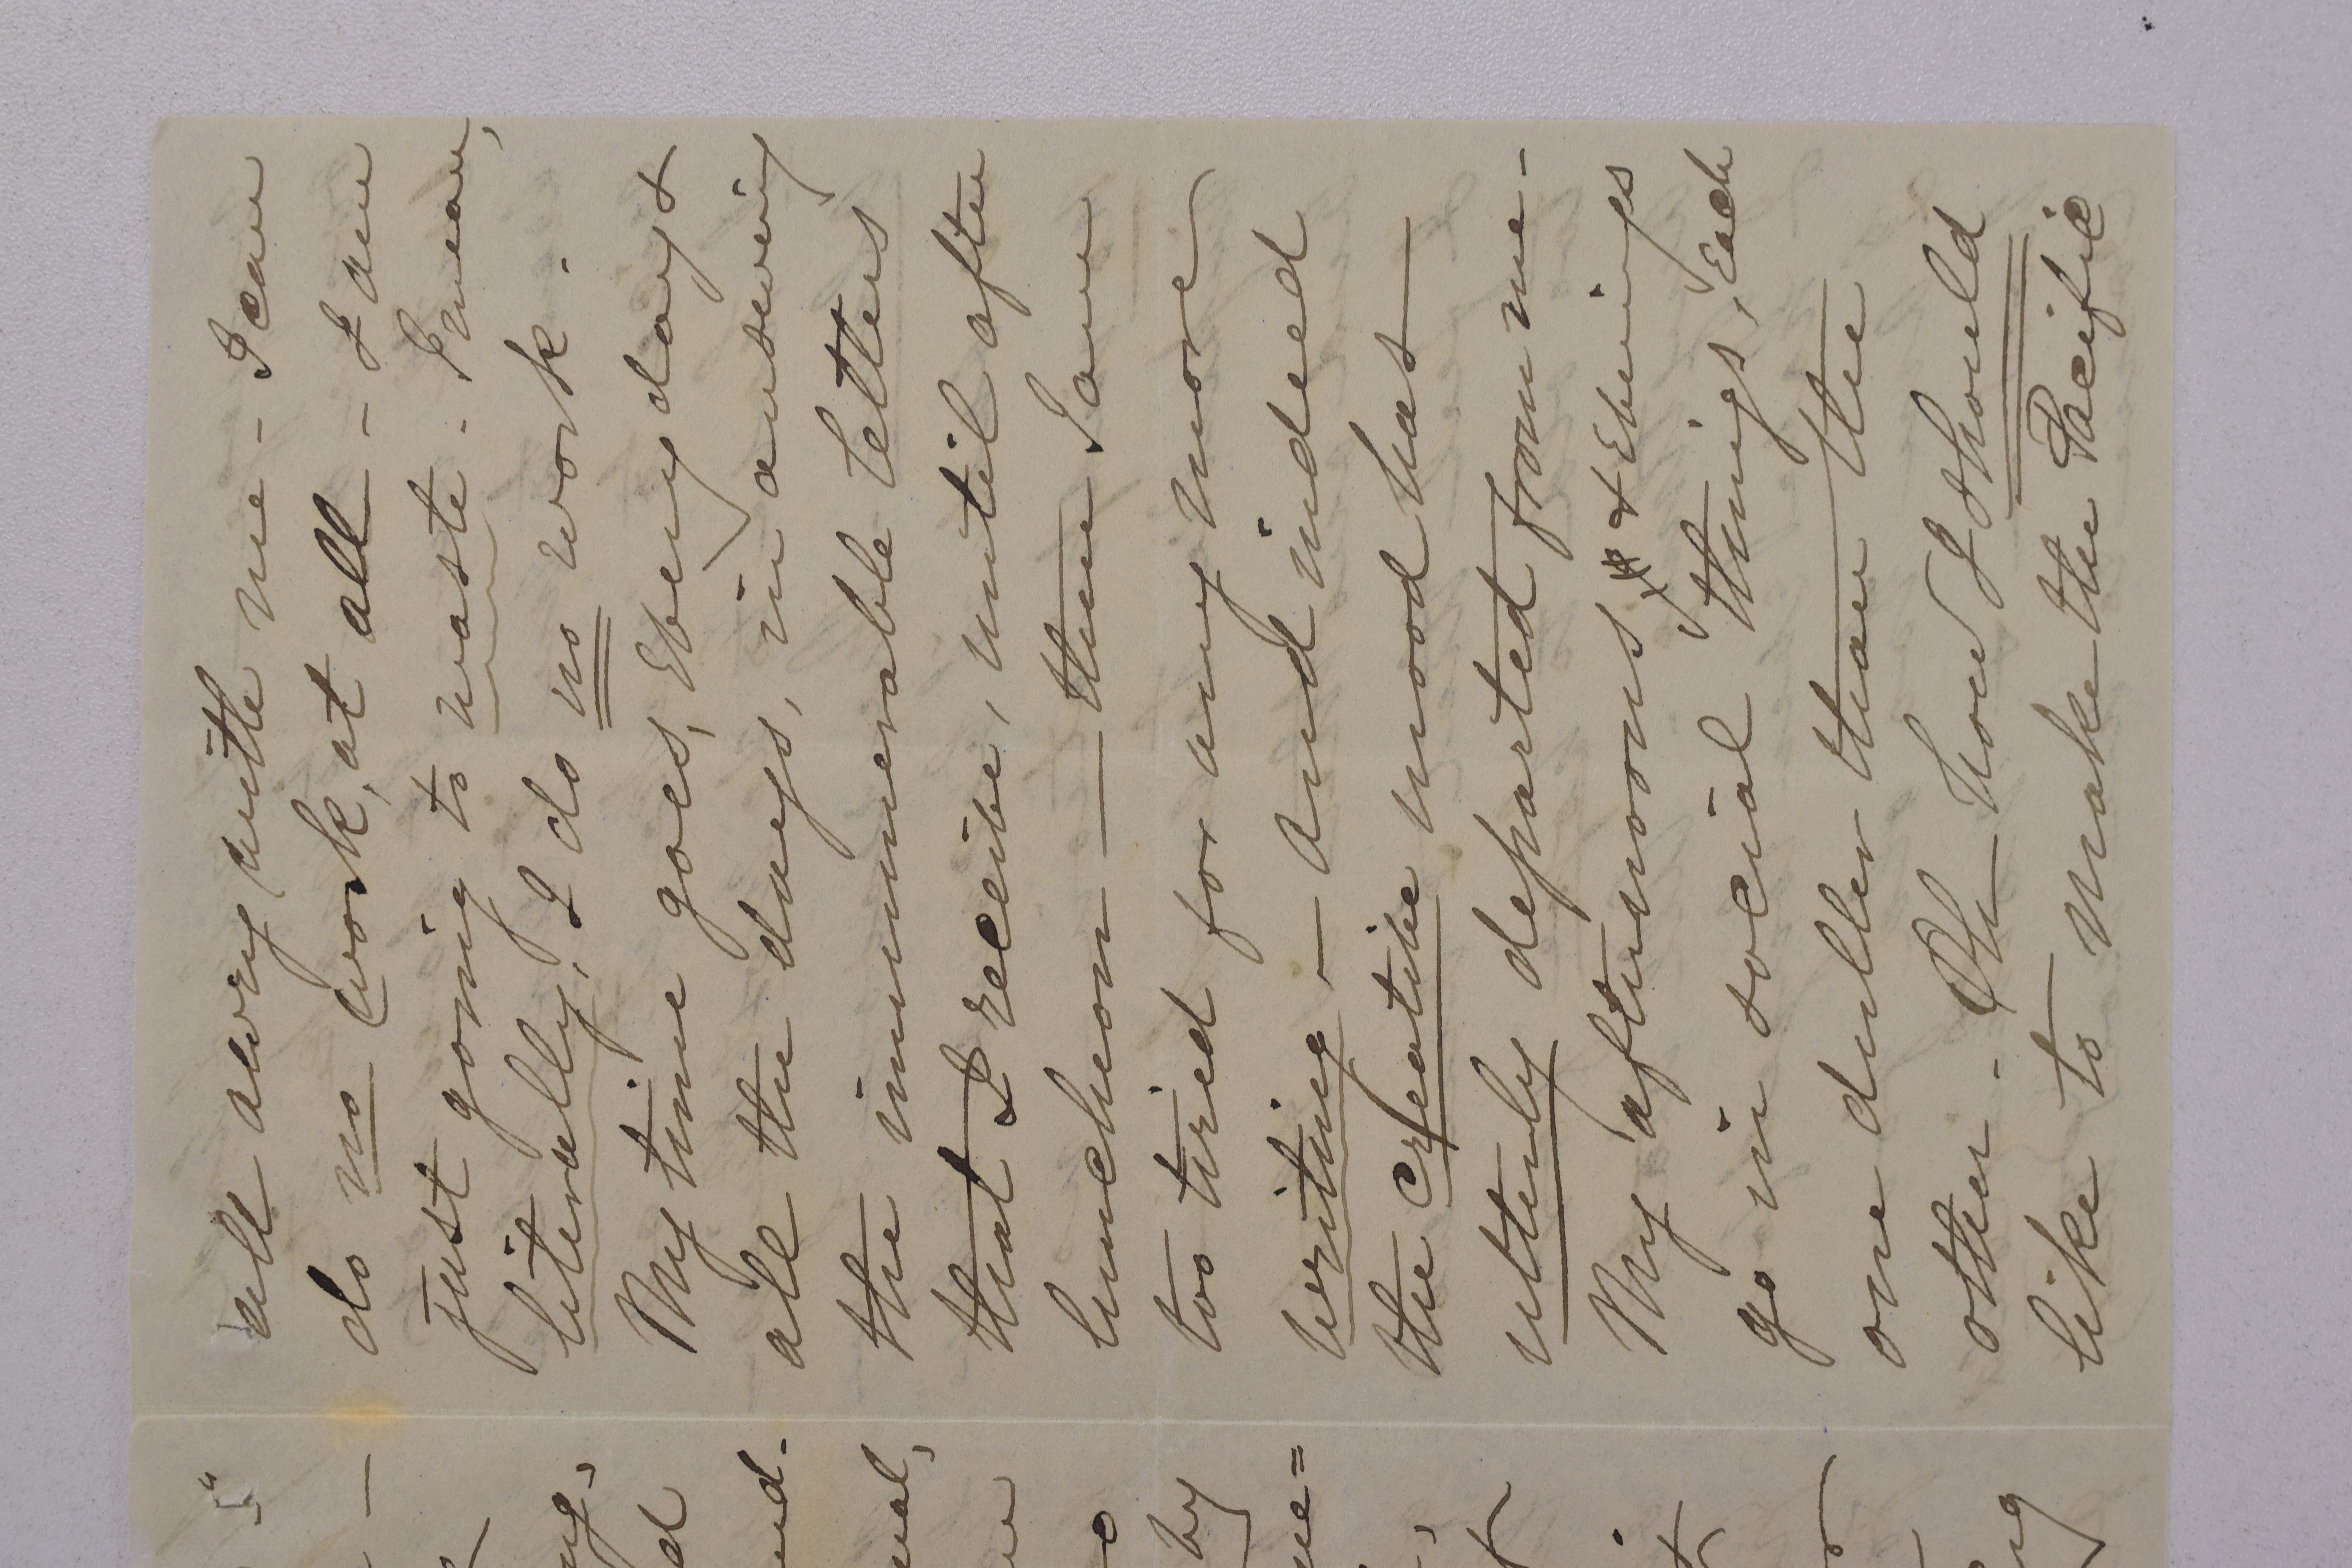 all awry with me - I can
do no work, at all - I am
just going to waste - I mean,
literally, I do no work.
My time goes, every day &
all the days, in answering
the innumerable letters
that I receive, until after
luncheon - then I am
too tired for any more
writing - and indeed
the creative mood has
utterly departed from me -
My afternoons & evenings
go in social things, each
one duller than the
other - Oh how I should
like to make the Pacific
5"
ng,
d
nd.
ual,
by
ne=
ng